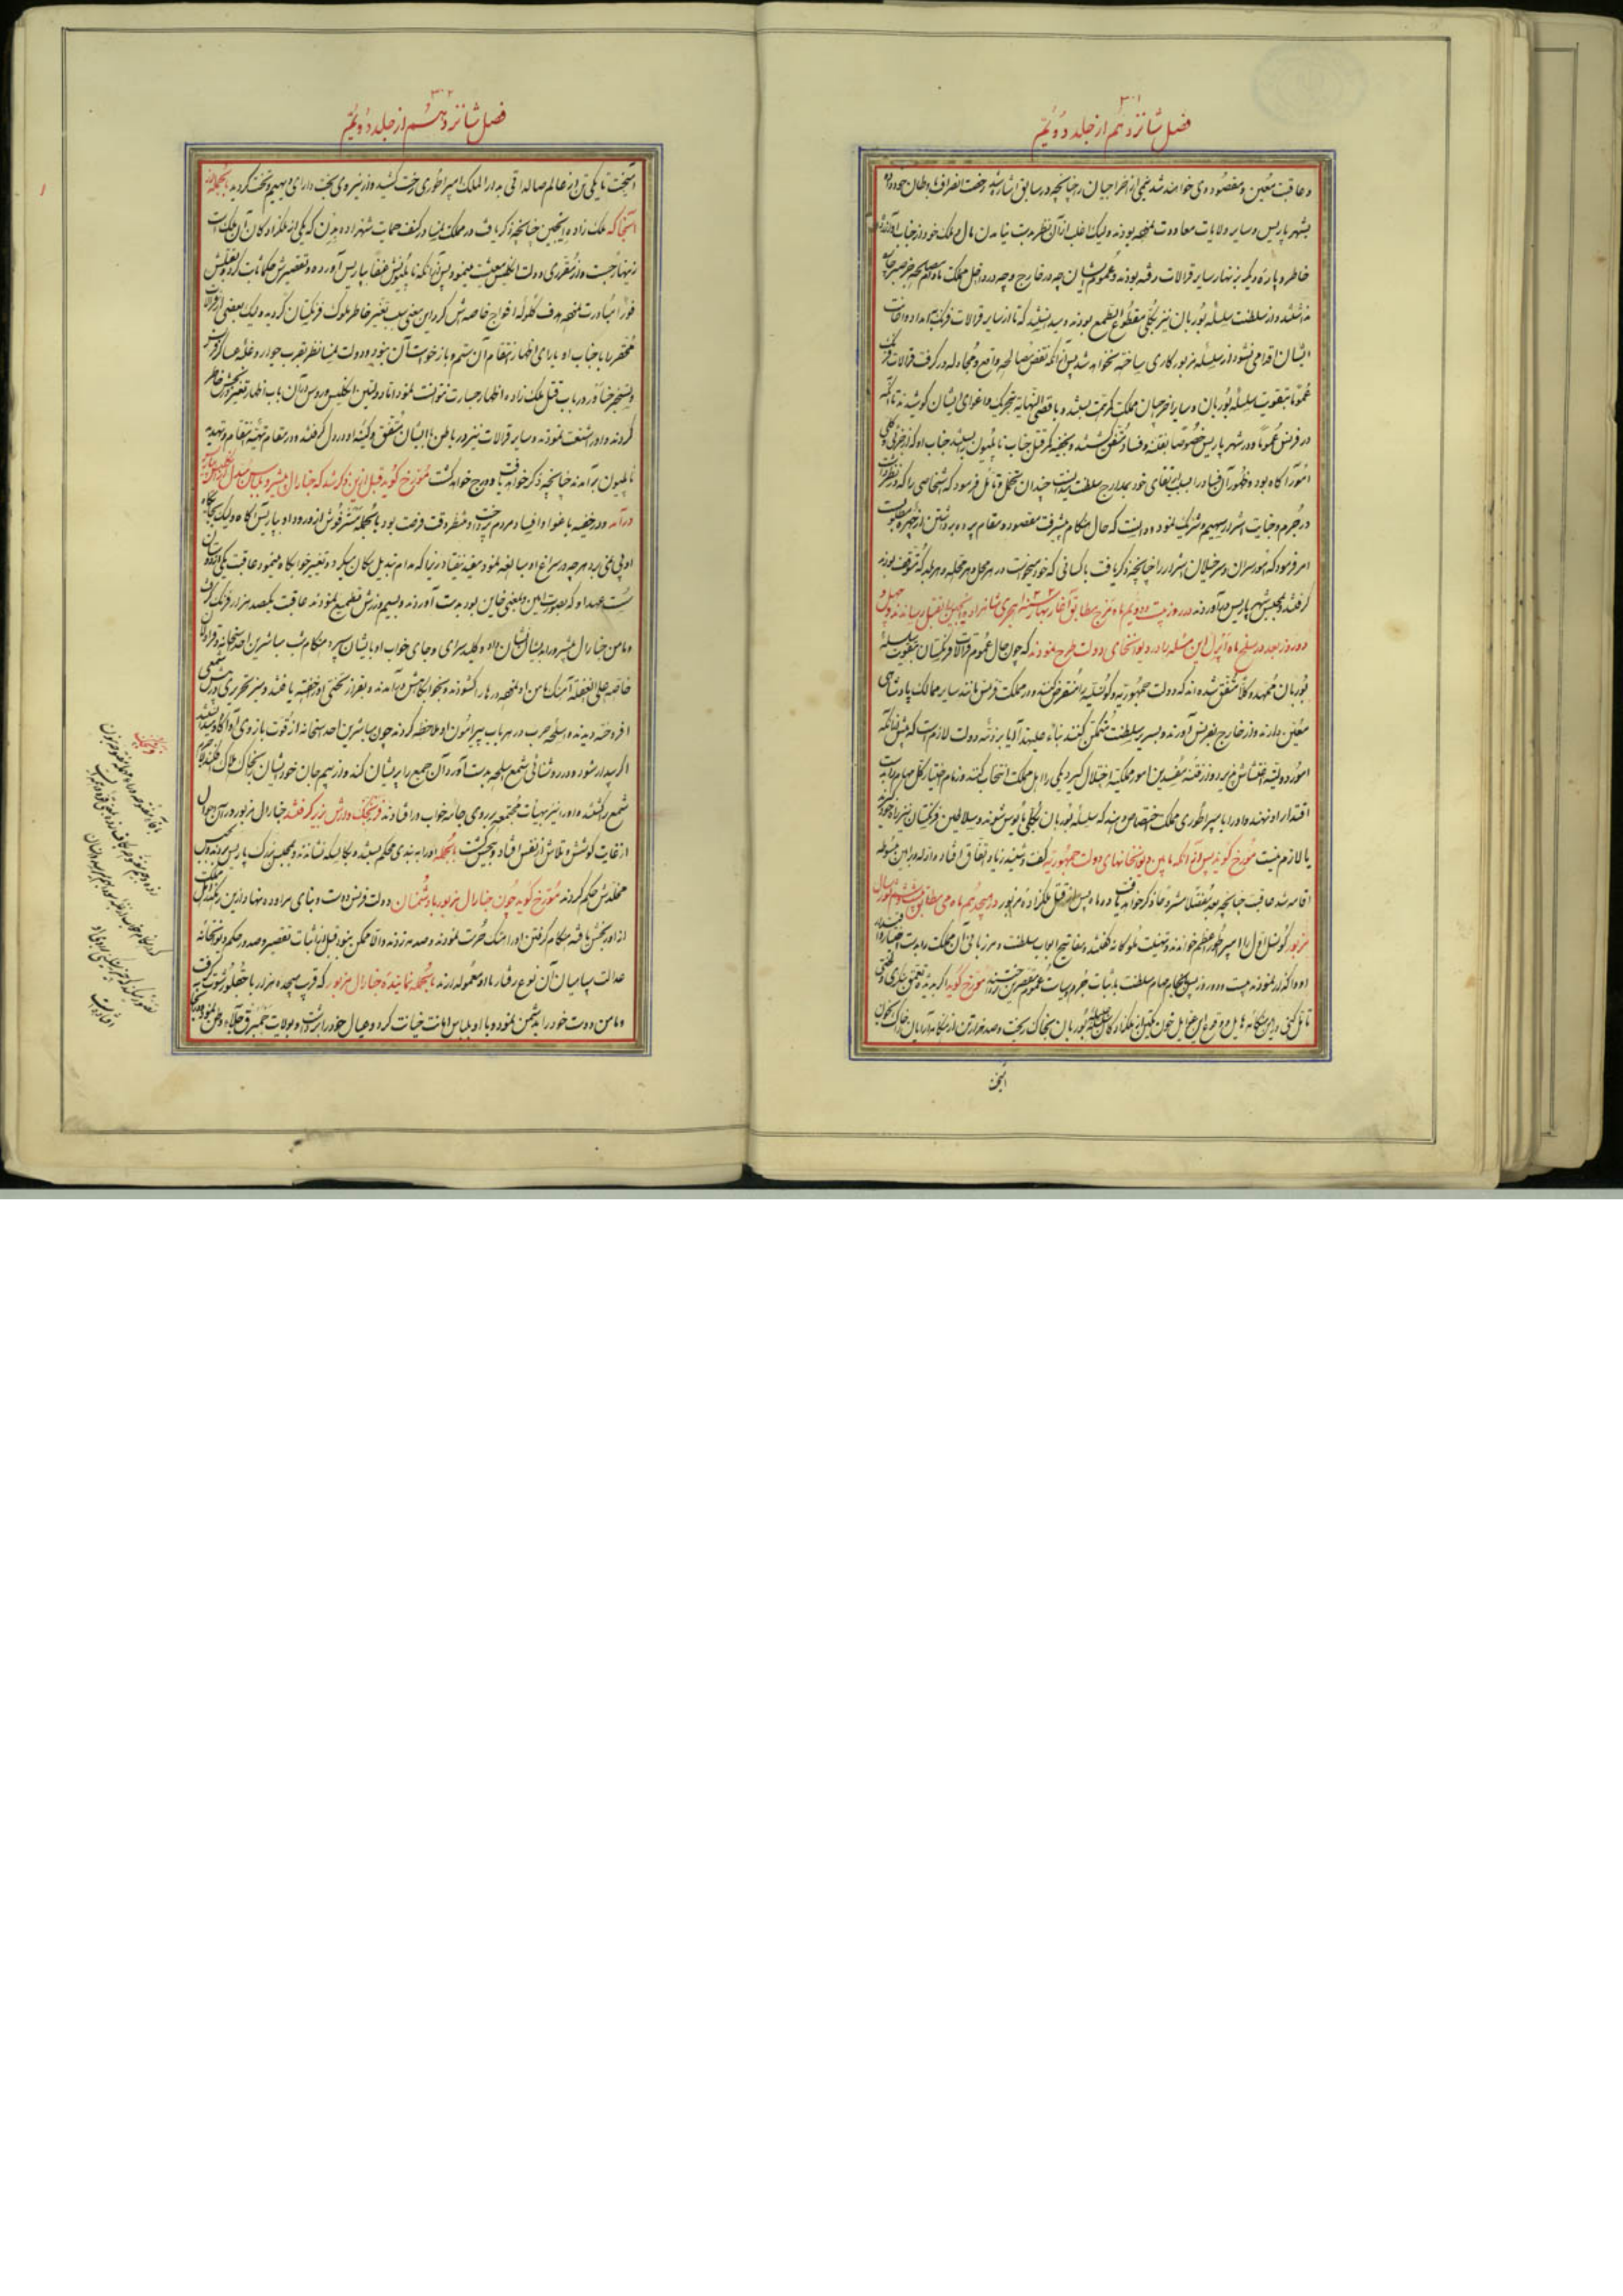 ۳۰۱
فصل شانزدهم از جلد دویم
و عاقبت معین و مقصوده‌ی خواهند شد نیمی از اخراجیان را چنانچه در سابق اشاره شد رخصت انصراف باوطان خود داده
بشهر پاریس و سایر ولایات معاودت نموده بودند ولیک اغلب از آن نظر بدست نیامدن مال و ملک خود از جناب او آزرده
خاطر و پاره دیگر بزنهار سایر قرالات رفته بودند و عموم ایشان چه در خارج و چه در داخل مملکت
نداشتند و از سلطنت سلسله بوربان نیز بکلی مقطوع الطمع بودند و میدانستند که تا از سایر قرالات فرنگ امداد و اعانت
ایشان اقدامی نشود از سلسله مزبور کاری ساخته نخواهد شد پس از آنکه نقض مصالحه واقع و مجادله در گرفت قرالات فرنگ
عموماً بتقویت سلسله بوربان و سایر اخرجیان مملکت کمر همت بستند و باقصی النهایه بتحریک و اغوای ایشان کوشیدند تا آنکه
در فرنس عموماً و در شهر پاریس خصوصاً بفتنه و فساد متفق گشتند و بخفیه کمر قتل جناب ناپلیون را بستند جناب او که از جزئی و کلی
امور آگاه بود و ظهور آن فساد را سبب ارتقای خود بمدارج سلطنت میدانست چندان تحمل و تأمل فرمود که اشخاصی را که در نظر داشت
در جرم و جنایت اشرار سهیم و شریک نمود و دانست که حال هنگام پیشرفت مقصود و مقام پرده برداشتن از چهره مطلوبست
امر فرمود که امور سران و سرخیلان اشرار را چنانچه ذکر یافت با کسانی که خود میخواست در هر محل و هر محله و هر بلد که متوقف بودند
گرفتند و بمحبس شهر پاریس درآوردند در روز بیست و دویم ماه مزبور مطابق آغاز بهار سنه هجری شاهزاده انجین را بقتل رساندند و چهل و
دو روز بعد در سلخ ماه آپریل این مسئله را در دیوانخای دولت طرح نمودند که چون حال عموم قرالات فرنگستان بتقویت سلسله
بوربان ممهد و کلاً متفق شده‌اند که دولت جمهوریه و کونسلیه را منقرض کنند و در مملکت فرنس مانند سایر ممالک پادشاهی
معین دارند و از خارج بفرنس آورند و بسریر سلطنت متمکن کنند بناءً علیهذا آیا بر ذمه دولت لازم است که پیش از آنکه
امور دولتیه اغتشاش پذیرد و از فتنه مفسدین امور مملکتیه اختلال گیرد یکی را اهل مملکت انتخاب کنند و زمام اختیار کل مهام را بدست
اقتدار او نهند و او را بامپراطوری مملکت اختصاص دهند که سلسله بوربان بکلی مأیوس شوند و سلاطین فرنگستان نیز
یا لازم نیست مورخ گوید پس از آنکه مابین دیوانخانهای دولت جمهوریه گفت و شنید زیاد اتفاق افتاد
اقامه شد عاقبت چنانچه بعد مفصلاً مشروحاً ذکر خواهد یافت دو ماه پس از قتل ملکزاده مزبور در هیجدهم ماه می مطابق
مزبور کونسل اول را امپراطور اعظم خواندند و تهنیت ملوکانه گفتند و مفاتیح ابواب سلطنت و مرزبانی آن مملکت را بدست
او واگذار نمودند بیست و دو روز پس از انجام مهام سلطنت باثبات جرم و سیئات عموم مقصرین پرداختند مورخ گوید اگر بدیده تعمق بنگری و لختی
تأمل کنی
آنجخت
۳۰۲
فصل شانزدهم از جلد دویم
آنجخت تا یکی تن از عالم صالداتی بدار الملک امپراطوری رخت کشید و از نیروی بخت دارای دیهیم و تخت گردید بالجمله از
آنجا که ملک زاده انجین چنانچه ذکر یافت در مملکت نمسا در کنف حمایت شهزاده بادن که یکی از ملکزادگان آن ملک است
زینهار جست و از مقرری دولت انگلیس معیشت مینمود پس از آنکه ناپلیونش عنفاً بپاریس آورده و تقصیرش حکماً ثابت کرده و بقتلش
فوراً مبادرت نمود هدف گلوله افواج خاصه‌اش کرد این معنی سبب تغیر خاطر ملوک فرنگستان گردید ولیک بعضی از قرالات
محقر را با جناب او یارای اظهار انتقام آن ستم و بازخواست آن نبود و دولت نمسا نظر بقرب جوار و غلبه عساکر فرنس
و تسخیر خناور در باب قتل ملک زاده اظهار جسارت نتوانست نمود اما دولتین انگلیس و روس در آن باب اظهار تغیر و رنجش خاطر
کردند و او را شنعت نمودند و سایر قرالات نیز در باطن با ایشان متفق و کینه او در دل گرفتند و در مقام تهیه انتقام و تهدید
ناپلیون برآمدند چنانچه ذکر خواهد یافت و درج خواهد گشت مورخ گوید قبل ازین ذکر شد که جنارال پشرو
درآمد و در خفیه باغوا و افساد مردم پرداخت و منتظر وقت فرصت بود بالجمله منستر فوش از ورود او بپاریس آگاه ولیک بجایگاه
او پی نمی‌برد هرچه در سراغ او مبالغه نمود مفید نیفتاد زیرا که مدام تبدیل مکان میکرد و تغییر خوابگاه مینمود عاقبت یکی از دوستان
سست عهد او که بصورت امین و بمعنی خاین بود بدست آوردند و بسیم و زرش تطمیع نمودند عاقبت یکصد هزار فرنک گرفت
و مأمن جنارال پشرو را بدیشان نشان داد و کلید سرای و جای خواب او بایشان سپرد هنگام شب مباشرین اخذ سیخانه و قراولان
خاصه علی الغفله آهنگ مأمن او نمود در ها را گشودند و بخوابگاهش درآمدند و بفراز تختی او را خفته یافتند و میز تحریری و شمعی
افروخته دیدند و اسلحه حرب در هر باب پیرامون او ملاحظه کردند چون مباشرین اخذ سیخانه از قوت بازوی او آگاه و میدانستند
اگر بیدار شود و در روشنائی شمع اسلحه بدست آورد آن جمع را پریشان کند و از بیم جان خود ایشان بخاک هلاک افکند
شمع را کشتند و او را نیز بهیأت مجتمعه بر روی جامه خواب در افتادند فرنجک وارش بزیر گرفتند جنارال مزبور در آن احوال
از غایت کوشش و تلاش از نفس افتاد و بیحس گشت بالجمله او را به بندی محکم ببستند و بکالسکه نشاندند و بمحبس بزرگ پاریس بردند و بحبس
مخلدش حکم کردند مورخ گوید چون جنارال مزبور با دشمنان دولت فرنس دوست و بنای مراوده نهاد و ازین رهگذر اهل مملکت
از او رنجش یافته هنگام گرفتن او را هتک حرمت نمودند و صدمه زدند والا ممکن نبود قبل از اثبات تقصیر و صدور حکم دیوانخانه
عدالت سپاهیان آن نوع رفتار با او معمول دارند بالجمله نماینده جنارال مزبور که قریب هیجده هزار باجاقلو رشوت گرفت
و مأمن دوست خود را بدشمن نمود و با او بلباس امانت خیانت کرد و عیال خود را برداشت و بولایت
فرنجک